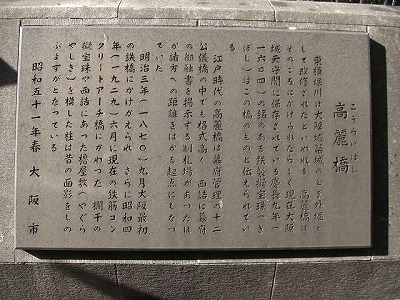 こうらいばし
高麗橋
東横堀川は大阪城築城のとき外堀と
して改修されたといわれる 高麗橋は
そのころにかけられたらしく現在大阪
城天守閣に保存されている慶長九年（
一六〇四）の銘のある鉄製擬宝珠（ぎ
ぼし）はこの橋のものと伝えられてい
る
江戸時代の高麗橋は幕府管理の十二
公儀橋の中でも格式高く 西詰に幕府
の御触書を掲示する制札場があったほ
か諸方への距離をはかる起点にもなっ
ていた
明治三年（一八七〇）九月大阪最初
の鉄橋にかけかえられ さらに昭和四
年（一九二九）六月に現在の鉄筋コン
クリートアーチ橋にかわった 欄干の
擬宝珠や西詰にあった櫓屋敷（やぐら
やしき）を模した柱は昔の面影をしの
ぶよすがとなっている
昭和五十一年春 大阪市